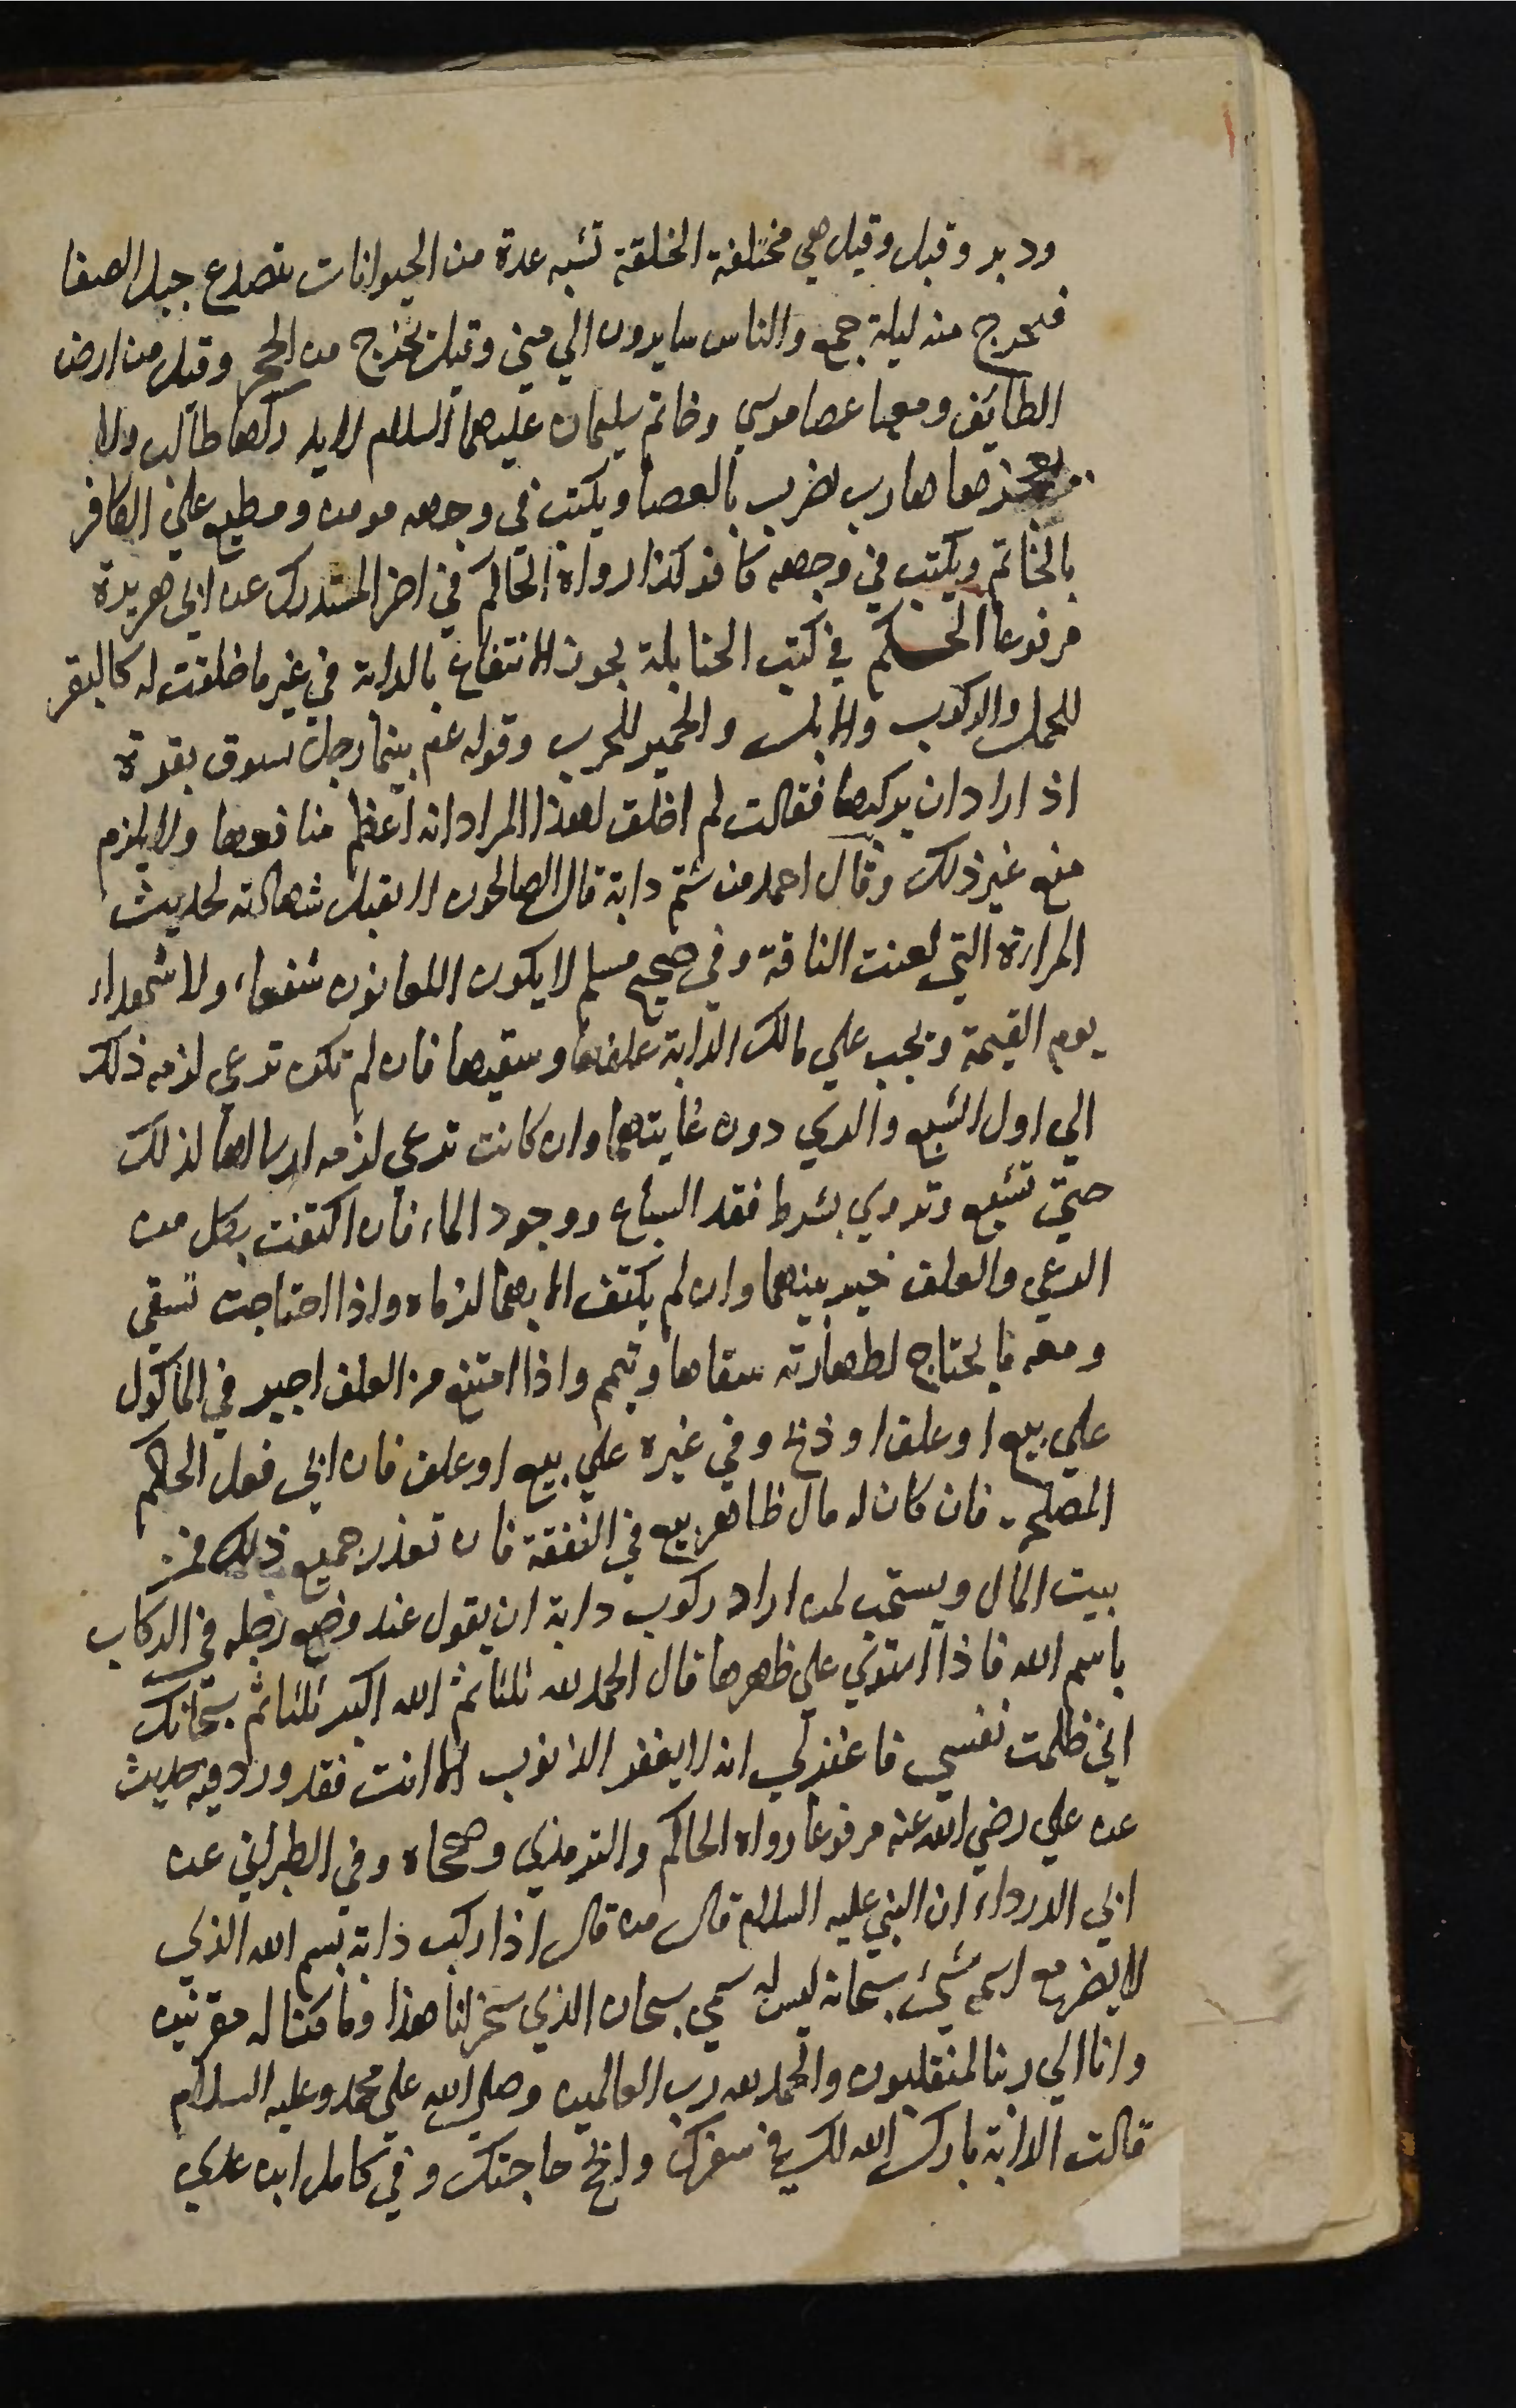 ودبر وقبل وقيل هي مختلفة الخلقة تشبه عدة من الحيوانات يتصدع جبل الصفا
فيخرج منه ليلة جمع والناس سايرون الي مني وقيل تخرج من الحجر وقيل من ارض
الطائف ومعها عصا موسي وخاتم سليمان عليهما السلام لا يدركها طالب ولا
يعجزها هارب تضرب بالعصا ويكتب في وجهه مومن ومطبع علي الكافر
بالخاتم ويكتب في وجهه كافر كذا رواه الحاكم في اخر المستدرك عن ابي هريرة
مرفوعا الحكم في كتب الحنابلة يجوز الانتفاع بالدابة في غير ما خلقت له كالبقر
للحمل والركوب والابل والحمير للحرب وقوله عم بينما رجل يسوق بقرة
اذ اراد ان يركبها فقالت لم اخلق لهذا المراد انه اعظم منافعها ولا يلزم
منع غير ذلك وقال احمد من شتم دابة قال الصالحون لا تقبل شهادته لحديث
المراة التي لعنت الناقة وفي صحيح مسلم لا يكون اللعانون شفعاء ولا شهداء
يوم القيمة ويجب علي مالك الدابة علفها وسقيها فان لم تكن ترعي لزمه ذلك
الي اول الشبع والري دون غايتهما وان كانت ترعي لزمه ارسالها لذلك
حتي تشبع وتروي بشرط فقد السباع ووجود الماء فان اكتفت بكل من
الرعي والعلف خير بينهما وان لم يكتف الا بهما لزماه واذا احتاجت تسقي
ومعه ما يحتاج لطهارته سقاها وتيمم واذا امتنع من العلف اجبر في الماكول
علي بيع او علف او ذبح وفي غيره علي بيع او علف فان ابي فعل الحاكم
المصلحة فان كان له مال ظاهر بيع في النفقة فان تعذر جميع ذلك فمن
بيت المال ويستحب لمن اراد ركوب دابة ان يقول عند وضع رجله في الركاب
باسم الله فاذا استوي علي ظهرها قال الحمد لله ثلثا ثم الله اكبر ثلثا ثم سبحانك
اني ظلمت نفسي فاغفر لي انه لا يغفر الذنوب الا انت فقد ورد فيه حديث
عن علي رضي الله عنه مرفوعا رواه الحاكم والترمذي وصححاه وفي الطبراني عن
ابي الدرداء ان النبي عليه السلام قال من قال اذا ركب دابة بسم الله الذي
لا يضر مع اسمه شيء سبحانه ليس له سمي سبحان الذي سخر لنا هذا وما كنا له مقرنين
وانا الي ربنا لمنقلبون والحمد لله رب العالمين وصلي الله علي محمد وعليه السلام
قالت الدابة بارك الله لك في سفرك وانجح حاجتك وفي كامل ابن عدي